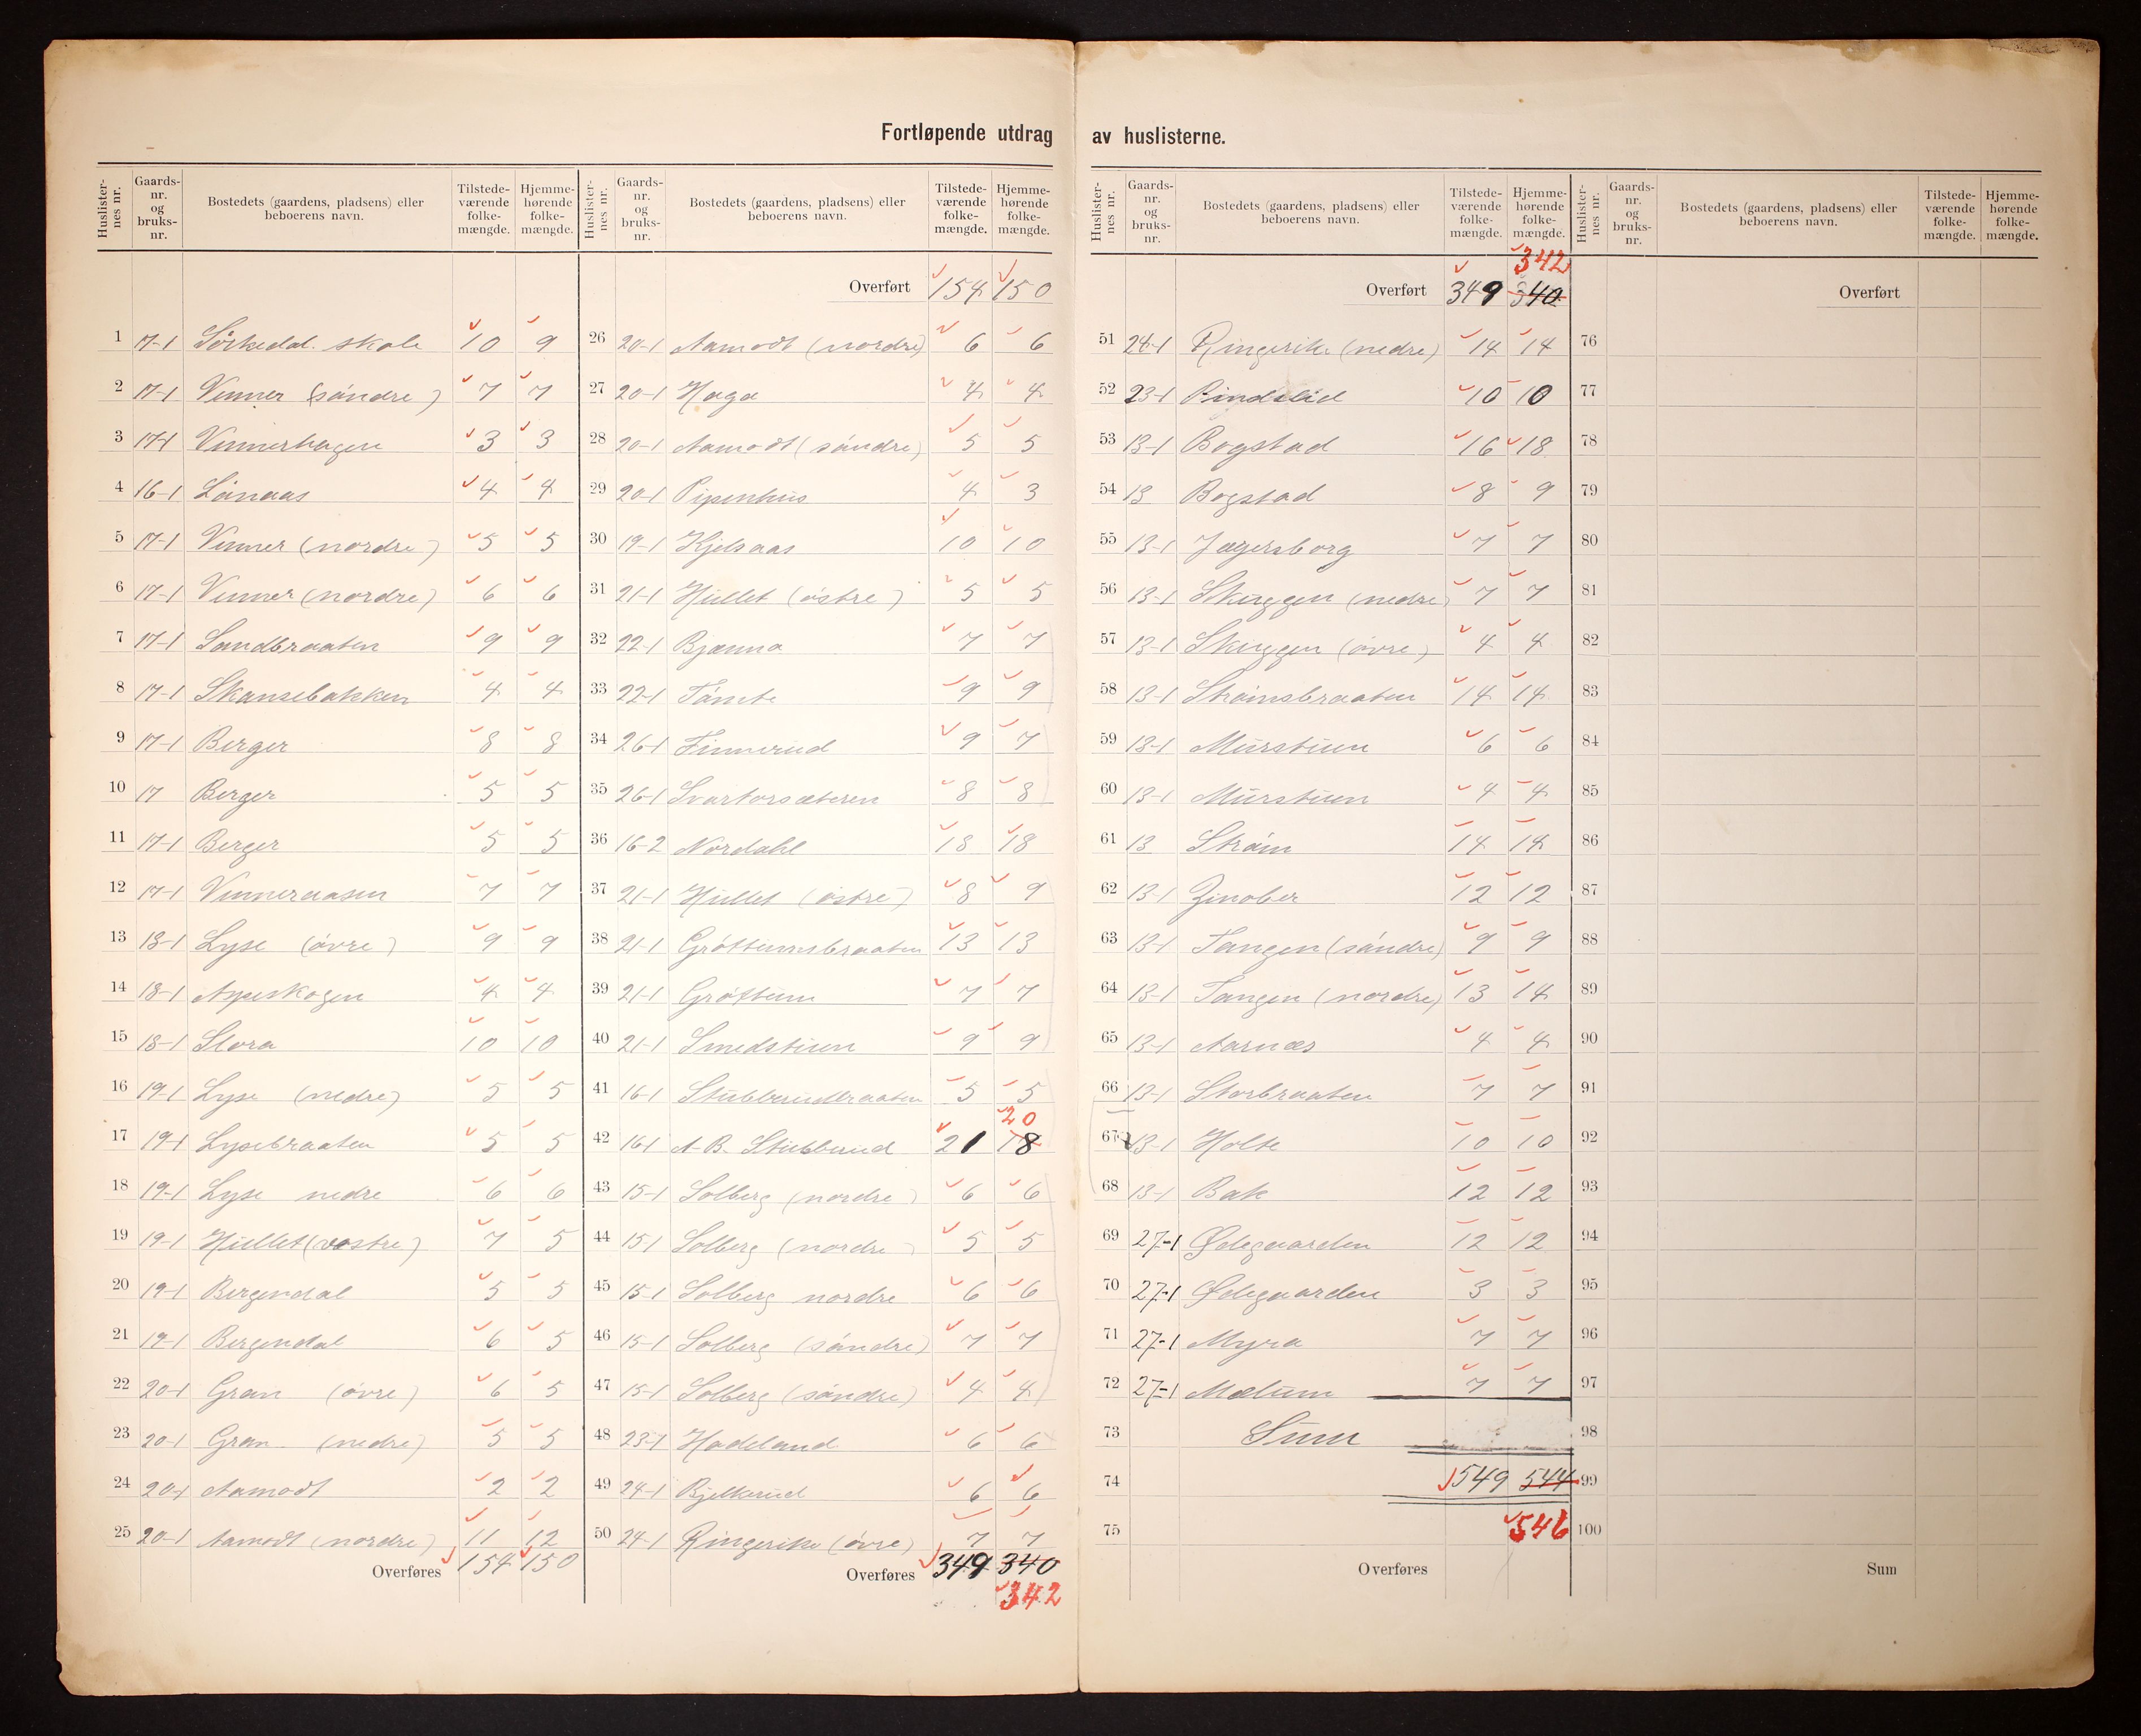 Fortløpende utdrag av huslisterne.
Huslisternes nr. Gaardsnr. og bruksnr. Bostedets (gaardens, pladsens) eller beboerens navn. Tilstedeværende folkemængde. Hjemmehørende folkemængde.
1 17-1 Sørkedal. skole 10 9
2 17-1 Vinner (søndre) 7 7
3 17-1 Vinnerhagen 3 3
4 16-1 Lønaas 4 4
5 17-1 Vinner (nordre) 5 5
6 17-1 Vinner (nordre) 6 6
7 17-1 Sandbraaten 9 9
8 17-1 Skansebakken 4 4
9 17-1 Berger 8 8
10 17 Berger 5 5
11 17-1 Berger 5 5
12 17-1 Vinneraasen 7 7
13 18-1 Lyse (øvre) 9 9
14 18-1 Aspeskogen 4 4
15 18-1 Slora 10 10
16 19-1 Lyse (nedre) 5 5
17 19-1 Lysebraaten 5 5
18 19-1 Lyse nedre 6 6
19 19-1 Hullet (vestre) 7 5
20 19-1 Bergendal 5 5
21 19-1 Bergendal 6 5
22 20-1 Gran (øvre) 6 5
23 20-1 Gran (nedre) 5 5
24 20-1 Aamodt 2 2
25 20-1 Aamodt (nordre) 11 12
Overføres 154 150
Huslisternes nr. Gaardsnr. og bruksnr. Bostedets (gaardens, pladsens) eller beboerens navn. Tilstedeværende folkemængde. Hjemmehørende folkemængde.
Overført 154 150
26 20-1 Aamodt (nordre) 6 6
27 20-1 Haga 4 4
28 20-1 Aamodt (søndre) 5 5
29 20-1 Pipenhus 4 3
30 19-1 Kjelsaas 10 10
31 21-1 Hullet (østre) 5 5
32 22-1 Bjønna 7 7
33 22-1 Tømte 9 9
34 26-1 Finnerud 9 7
35 26-1 Svartorsæteren 8 8
36 16-2 Nordahl 18 18
37 21-1 Hullet (østre) 8 9
38 21-1 Grøttumsbraaten 13 13
39 21-1 Grøttum 7 7
40 21-1 Smedstuen 9 9
41 16-1 Stubberudbraaten 5 5
20
42 16-1 A-B. Stubberud 21 18
43 15-1 Solberg (nordre) 6 6
44 15-1 Solberg (nordre) 5 5
45 15-1 Solberg nordre 6 6
46 15-1 Solberg (søndre) 7 7
47 15-1 Solberg (søndre) 4 4
48 23-1 Hadeland 6 6
49 24-1 Bjelkerud 6 6
50 24-1 Ringerike (øvre) 7 7
Overføres 349 340
342
Huslisternes nr. Gaardsnr. og bruksnr. Bostedets (gaardens, pladsens) eller beboerens navn. Tilstedeværende folkemængde. Hjemmehørende folkemængde.
342
Overført 349 340
51 24-1 Ringerike (nedre) 14 14
52 23-1 Pindslid 10 10
53 13-1 Bogstad 16 18
54 13 Bogstad 8 9
55 13-1 Jægersborg 7 7
56 13-1 Skuggen (nedre) 7 7
57 13-1 Skuggen (øvre) 4 4
58 13-1 Strømsbraaten 14 14
59 13-1 Murstuen 6 6
60 13-1 Murstuen 4 4
61 13 Strøm 14 14
62 13-1 Zinober 12 12
63 13-1 Tangen (søndre) 9 9
64 13-1 Tangen (nordre) 13 14
65 13-1 Aarnæs 4 4
66 13-1 Storbraaten 7 7
67 13-1 Holte 10 10
68 13-1 Bak 12 12
69 27-1 Ødegaarden 12 12
70 27-1 Ødegaarden 3 3
71 27-1 Myra 7 7
72 27-1 Mælum 7 7
73 Sum
74 549 544
75 546
Overføres
Huslisternes nr. Gaardsnr. og bruksnr. Bostedets (gaardens, pladsens) eller beboerens navn. Tilstedeværende folkemængde. Hjemmehørende folkemængde.
Overført
76
77
78
79
80
81
82
83
84
85
86
87
88
89
90
91
92
93
94
95
96
97
98
99
100
Sum